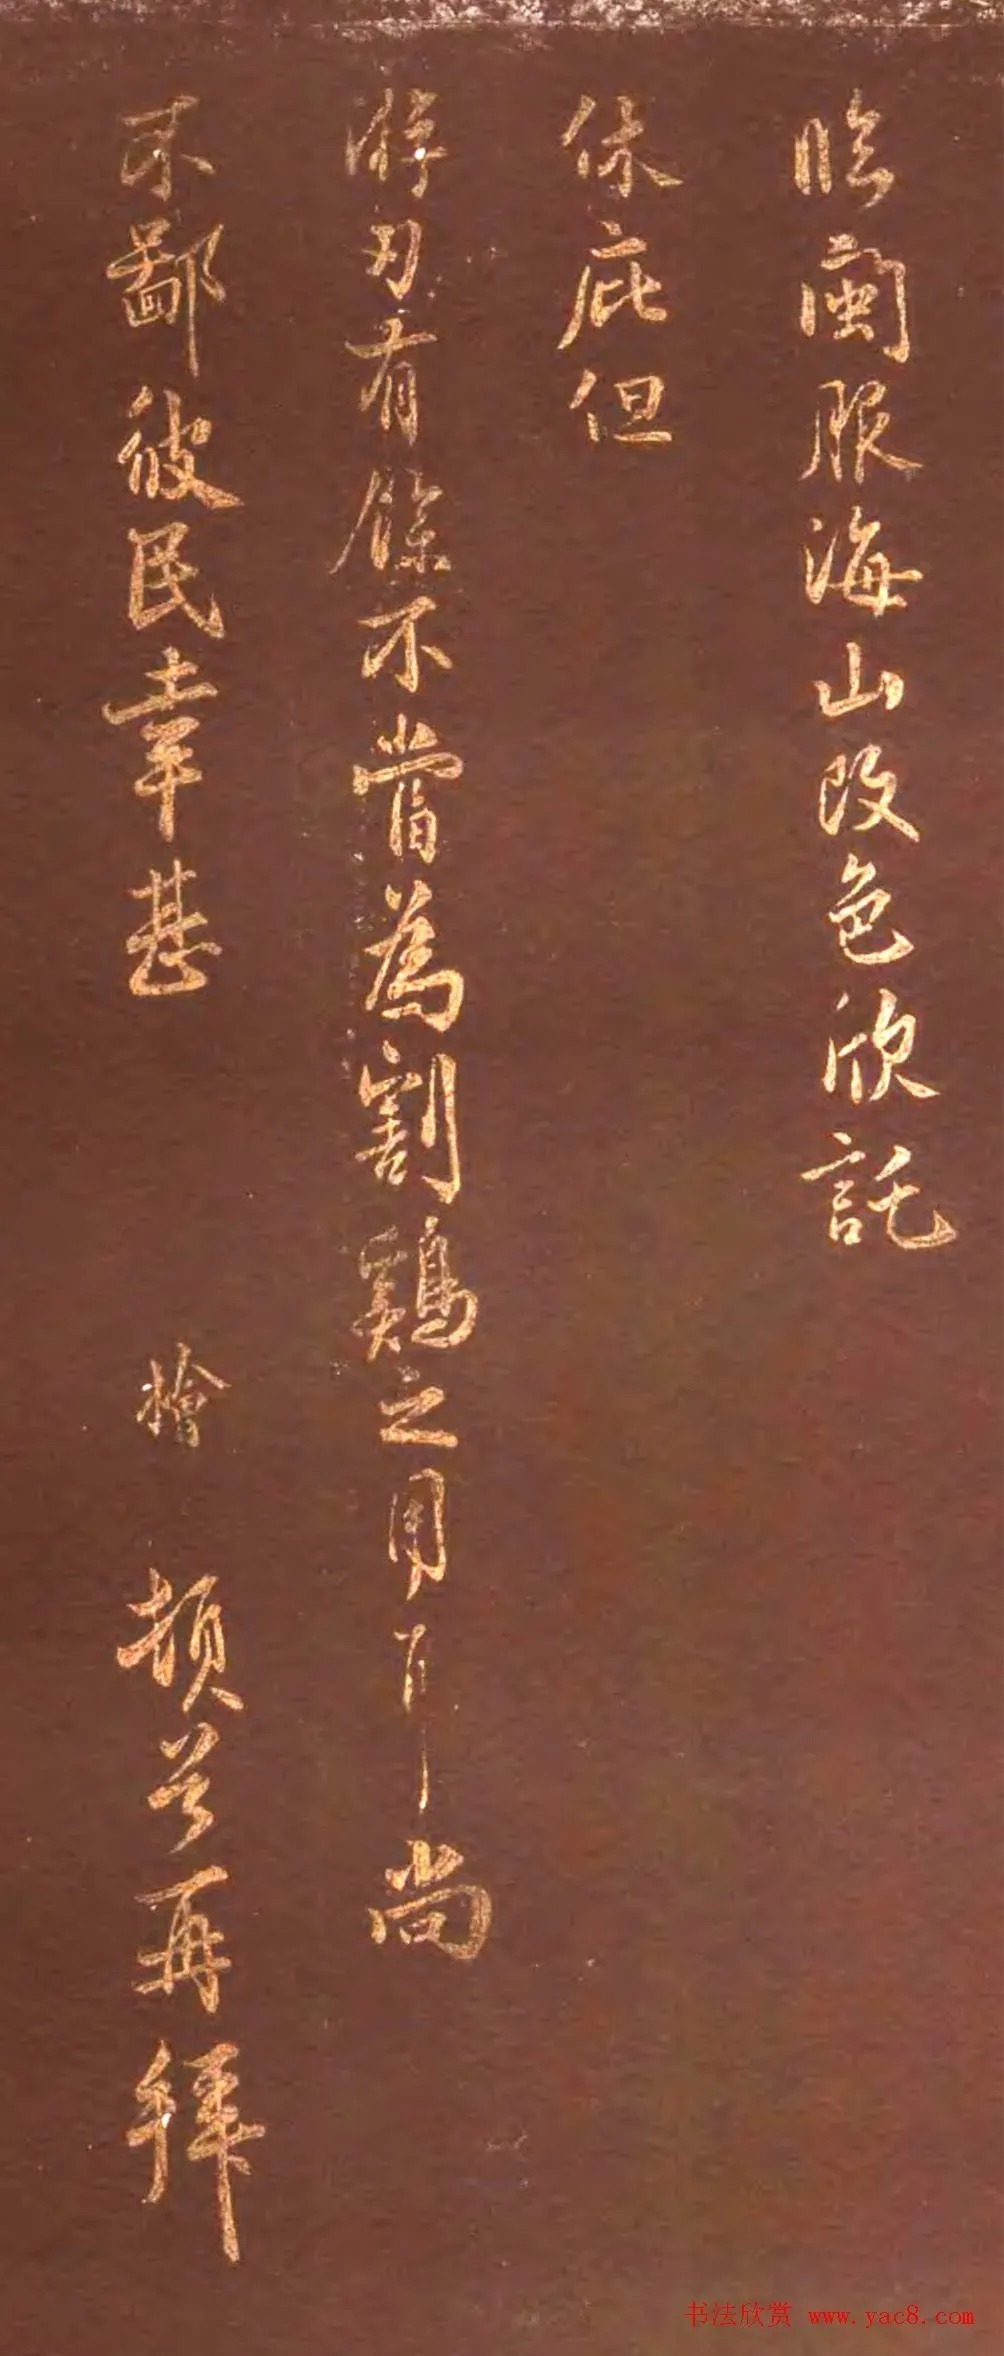 臨閩服海山改色欣託
休庇但
游刃有餘不嘗為割鷄之用耳尚
不鄙彼民幸甚 檜 頓首再拜
书法欣赏 www.yac8.com